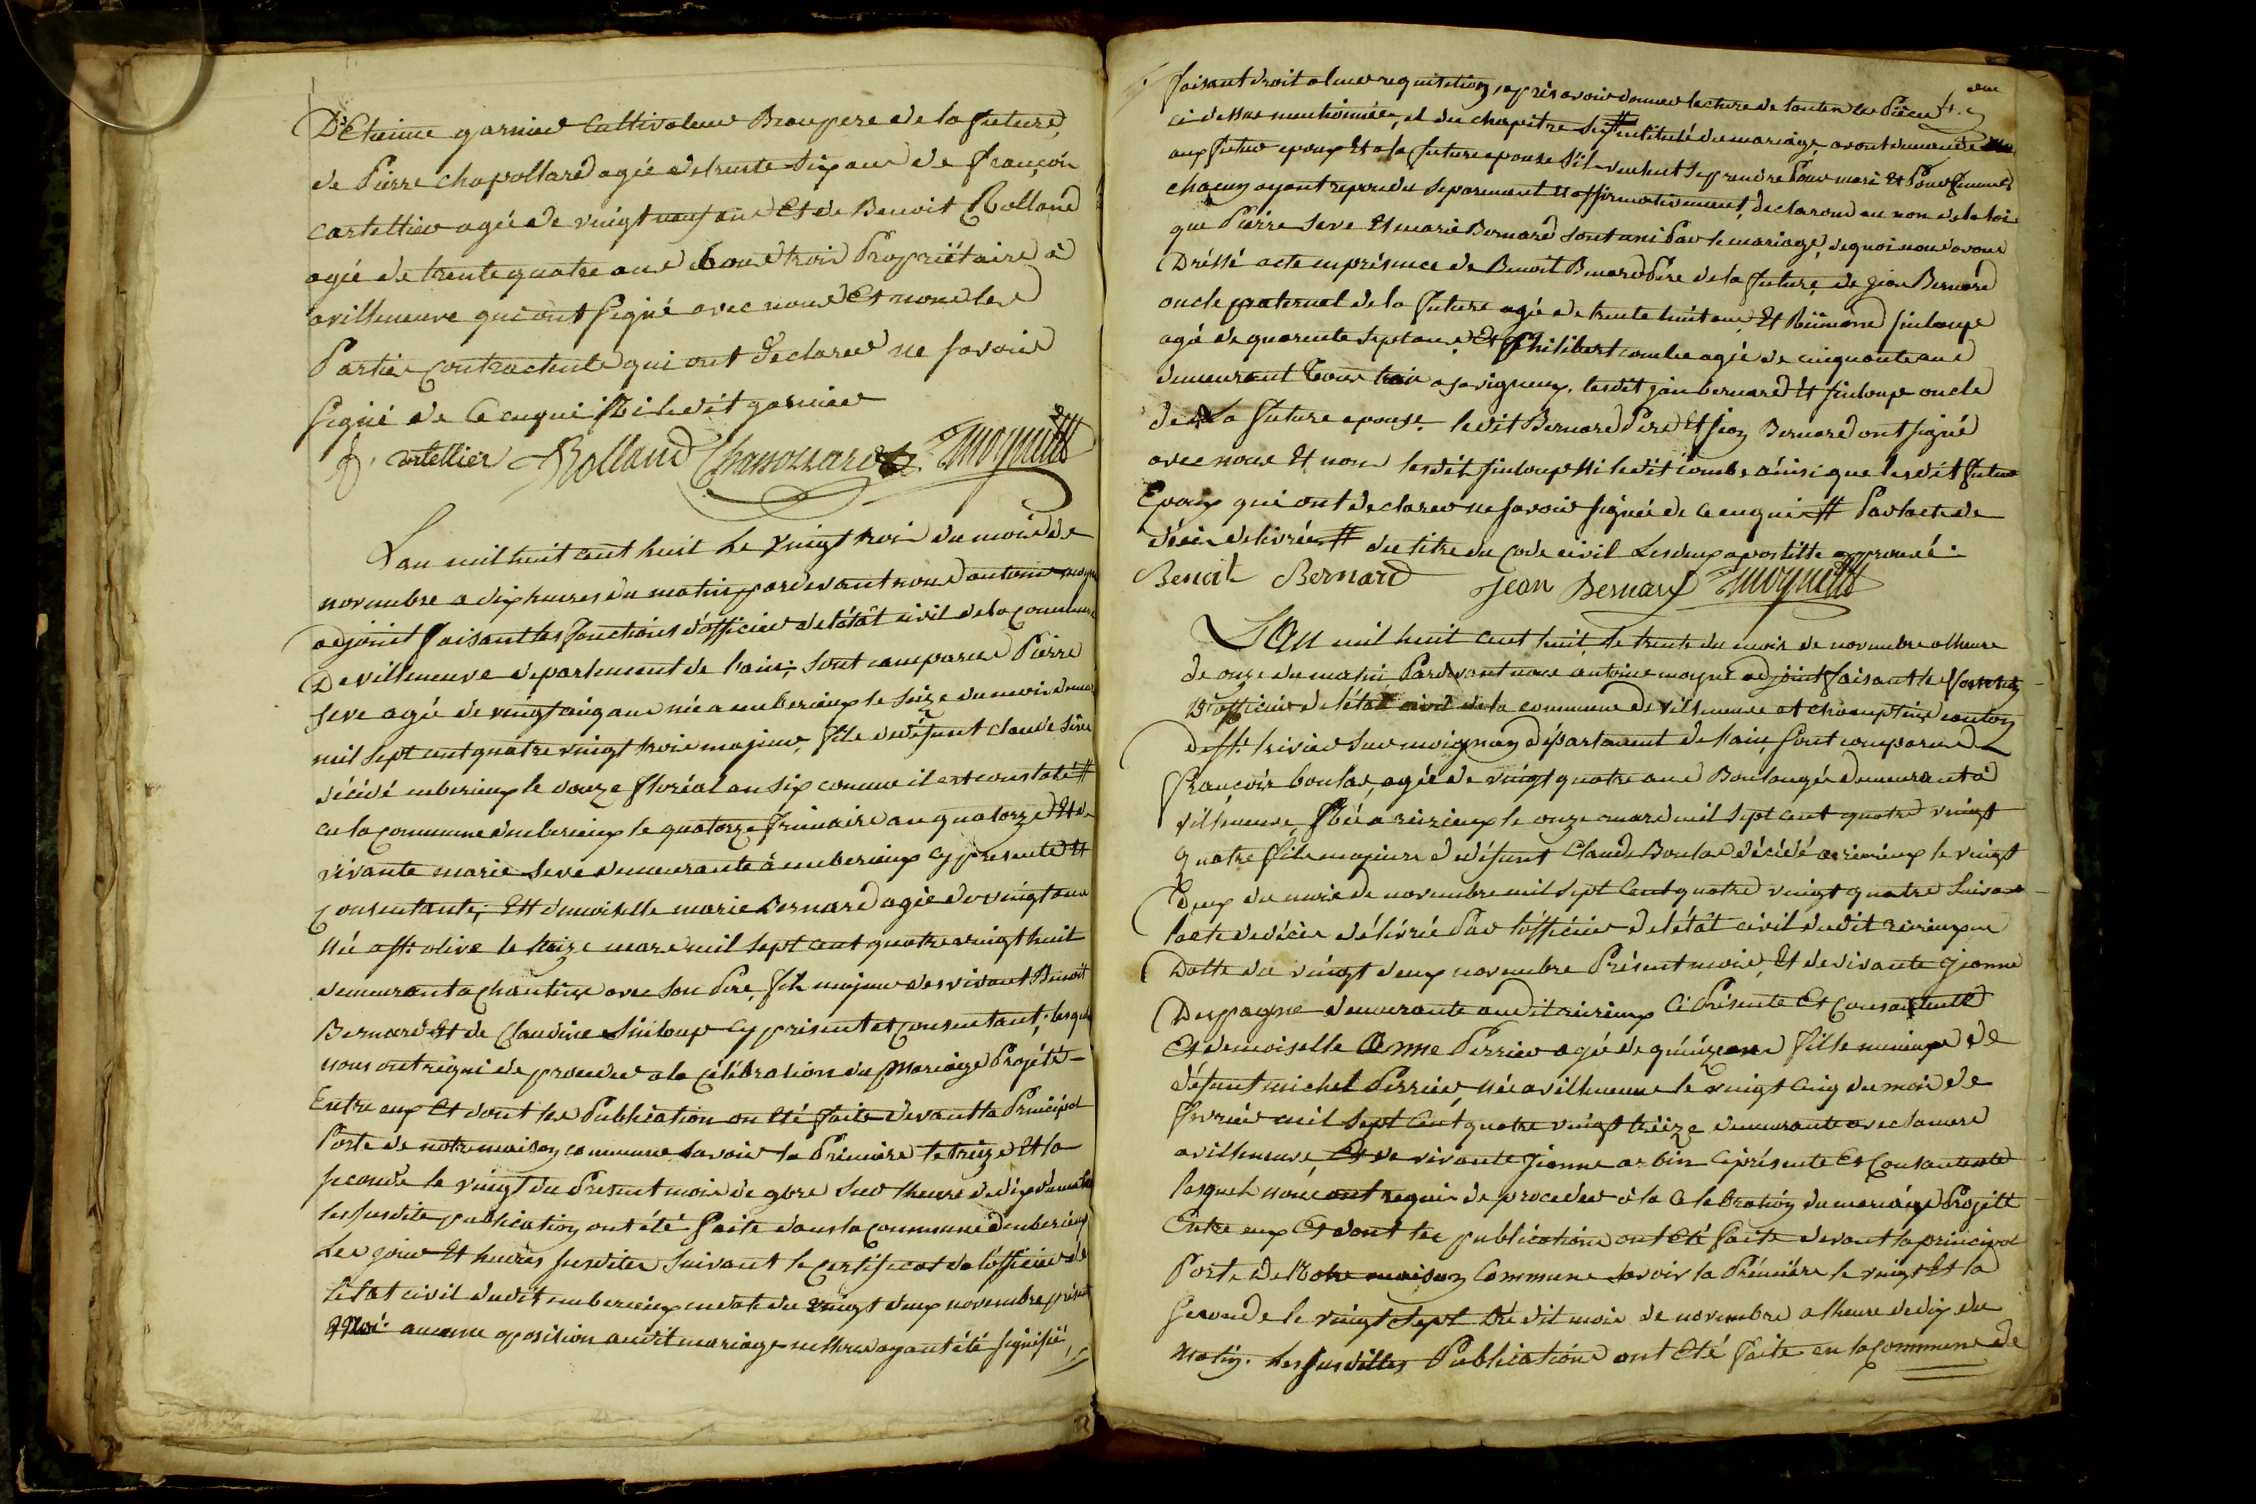 D'Etienne garnier Cultivateur Beaupere de la future
de Pierre chapollard agée de trente six ans de françois
cartellier agée de vingt neuf ans Et de Benoit Rolland
agée de trente quatre ans tous trois Propriétaire à
avilleneuve qui ont signé avec nous Et non les
Partie Contractente qui ont declarer ne savoir
signé de Ce enqui Ni ledit garnier
f. cartellier Rolland Chapollard
Lan mil huit cent huit Le vingt trois du mois de
novembre a dix heures du matin pardevant nous antoine moyne
adjoint faisant les fonctions d'officier de l'état civil de la Commune
De villeneuve departement de l'ain; sont comparus Pierre
seve agé de vingt cinq ans né a amberieux le seize du mois de mars
mil sept cent quatre vingt trois majeur, fils de défunt claude Séve
décédé amberieux le douze floréal an six comme il est constaté #
en la Commune damberieux le quatorze frimaire an quatorze Et de
vivante marie Seve demeurante à amberieux cy presente Et
Consentante; Et demoiselle marie Bernard agée de vingt ans
née a st. olive le treize mars mil sept cent quatre vingt huit
demeurant a Chanteins avec son Pere, fille majeur des vivant Benoit
Bernard Et de Claudine Sinloup cy présent et consentant; lesquels
nous ont requi de proceder a la Célébration du Mariage Projété
Entre eux Et dont les Publication on Eté faite devant la Principal
Porte de notre maison commune savoir la Prémiere le treize Et la
seconde le vingt du Present mois de 9bre sur lheure de dix du matin
les susdite publication ont été faite dans la Commune damberieux
Les jour Et heures susdites suivant le certificat de l'officier de
l'état civil dudit amberieux en date du vingt deux novembre présent
Moi. aucune oposition audit mariage ne nous ayant été signifié,
faisant droit a leur requisition, après avoir donner lecture de toutes les Pièces
ci dessus mentionnées, et du chapitre six # intitulé du mariage, avont demandé
aux futur epoux Et a la future epouse s'il veulent se prendre Pour mari Et Pour femme
chacun ayant repondu separement et affirmativement, declarons au non de la loi
que Pierre seve Et marie Bernard sont uni Par le mariage, de quoi nous avons
Dréssé acte en présence de Benoit Bernard Pere de la future, de jean Bernard
oncle paternel de la future agé de trente huit ans, Et Sinloup
agé de quarente sept ans, Et Philibert combe agé de cinquante ans
demeurant Tous trois a savigneux. lesdit jean bernard Et Sinloup oncle
de La future epouse. ledit Bernard Pere Et jean Bernard ont signé
avec nous Et non lesdit Sinloup Ni ledit combe ainsi que lesdit futur
Epoux qui ont declarer ne savoir signée de Ce enqui # Par lacte de
décès delivrée # du titre du Code civil Les deux apostille approuvé.
Benoit Bernard Jean Bernard
LAn mil huit cent huit, le trente du mois de novembre a lheure
de onze du matin Pardevant nous antoine moyne adjoint faisant les fonction
D'officier de létat civil de la commune de villeneuve et chanteins canton
de st. trivier sur moignan département de l'ain, sont comparus
François boulas, agée de vingt quatre ans Boulangé demeurant à
villeneuve, Né a rizieux le onze mars mil sept cent quatre vingt
quatre fils majeure de défunt Claude Boulas décédé a le vingt
Deux du mois de novembre mil sept Cent quatre vingt quatre suivant
lacte de décès délivré Par l'officier de létat civil dudit
Datte du vingt deux novembre Présent mois, Et de vivante jeanne
Despagne demeurante audit Ci Présente Et Consentente
Et demoiselle Anne Perrier agé de quinze ans fille mineure de
défunt michel Perrier, née a villeneuve le vingt cinq du mois de
fevrier mil sept cent quatre vingt treize demeurante avec samere
avilleneuve, Et de vivante jeanne arbin ci présente Et Consentente
lesquels nous ont requi de proceder à la Celebration du mariage Projété
Entre eux Et dont les publications ont Eté faite devant la principal
Porte de Notre maison Commune savoir la Prémiére le vingt Et la
seconde le vingt sept Du dit mois de novembre a lheure de dix du
Matin. Les susdittes Publications ont Eté faite en la commune de